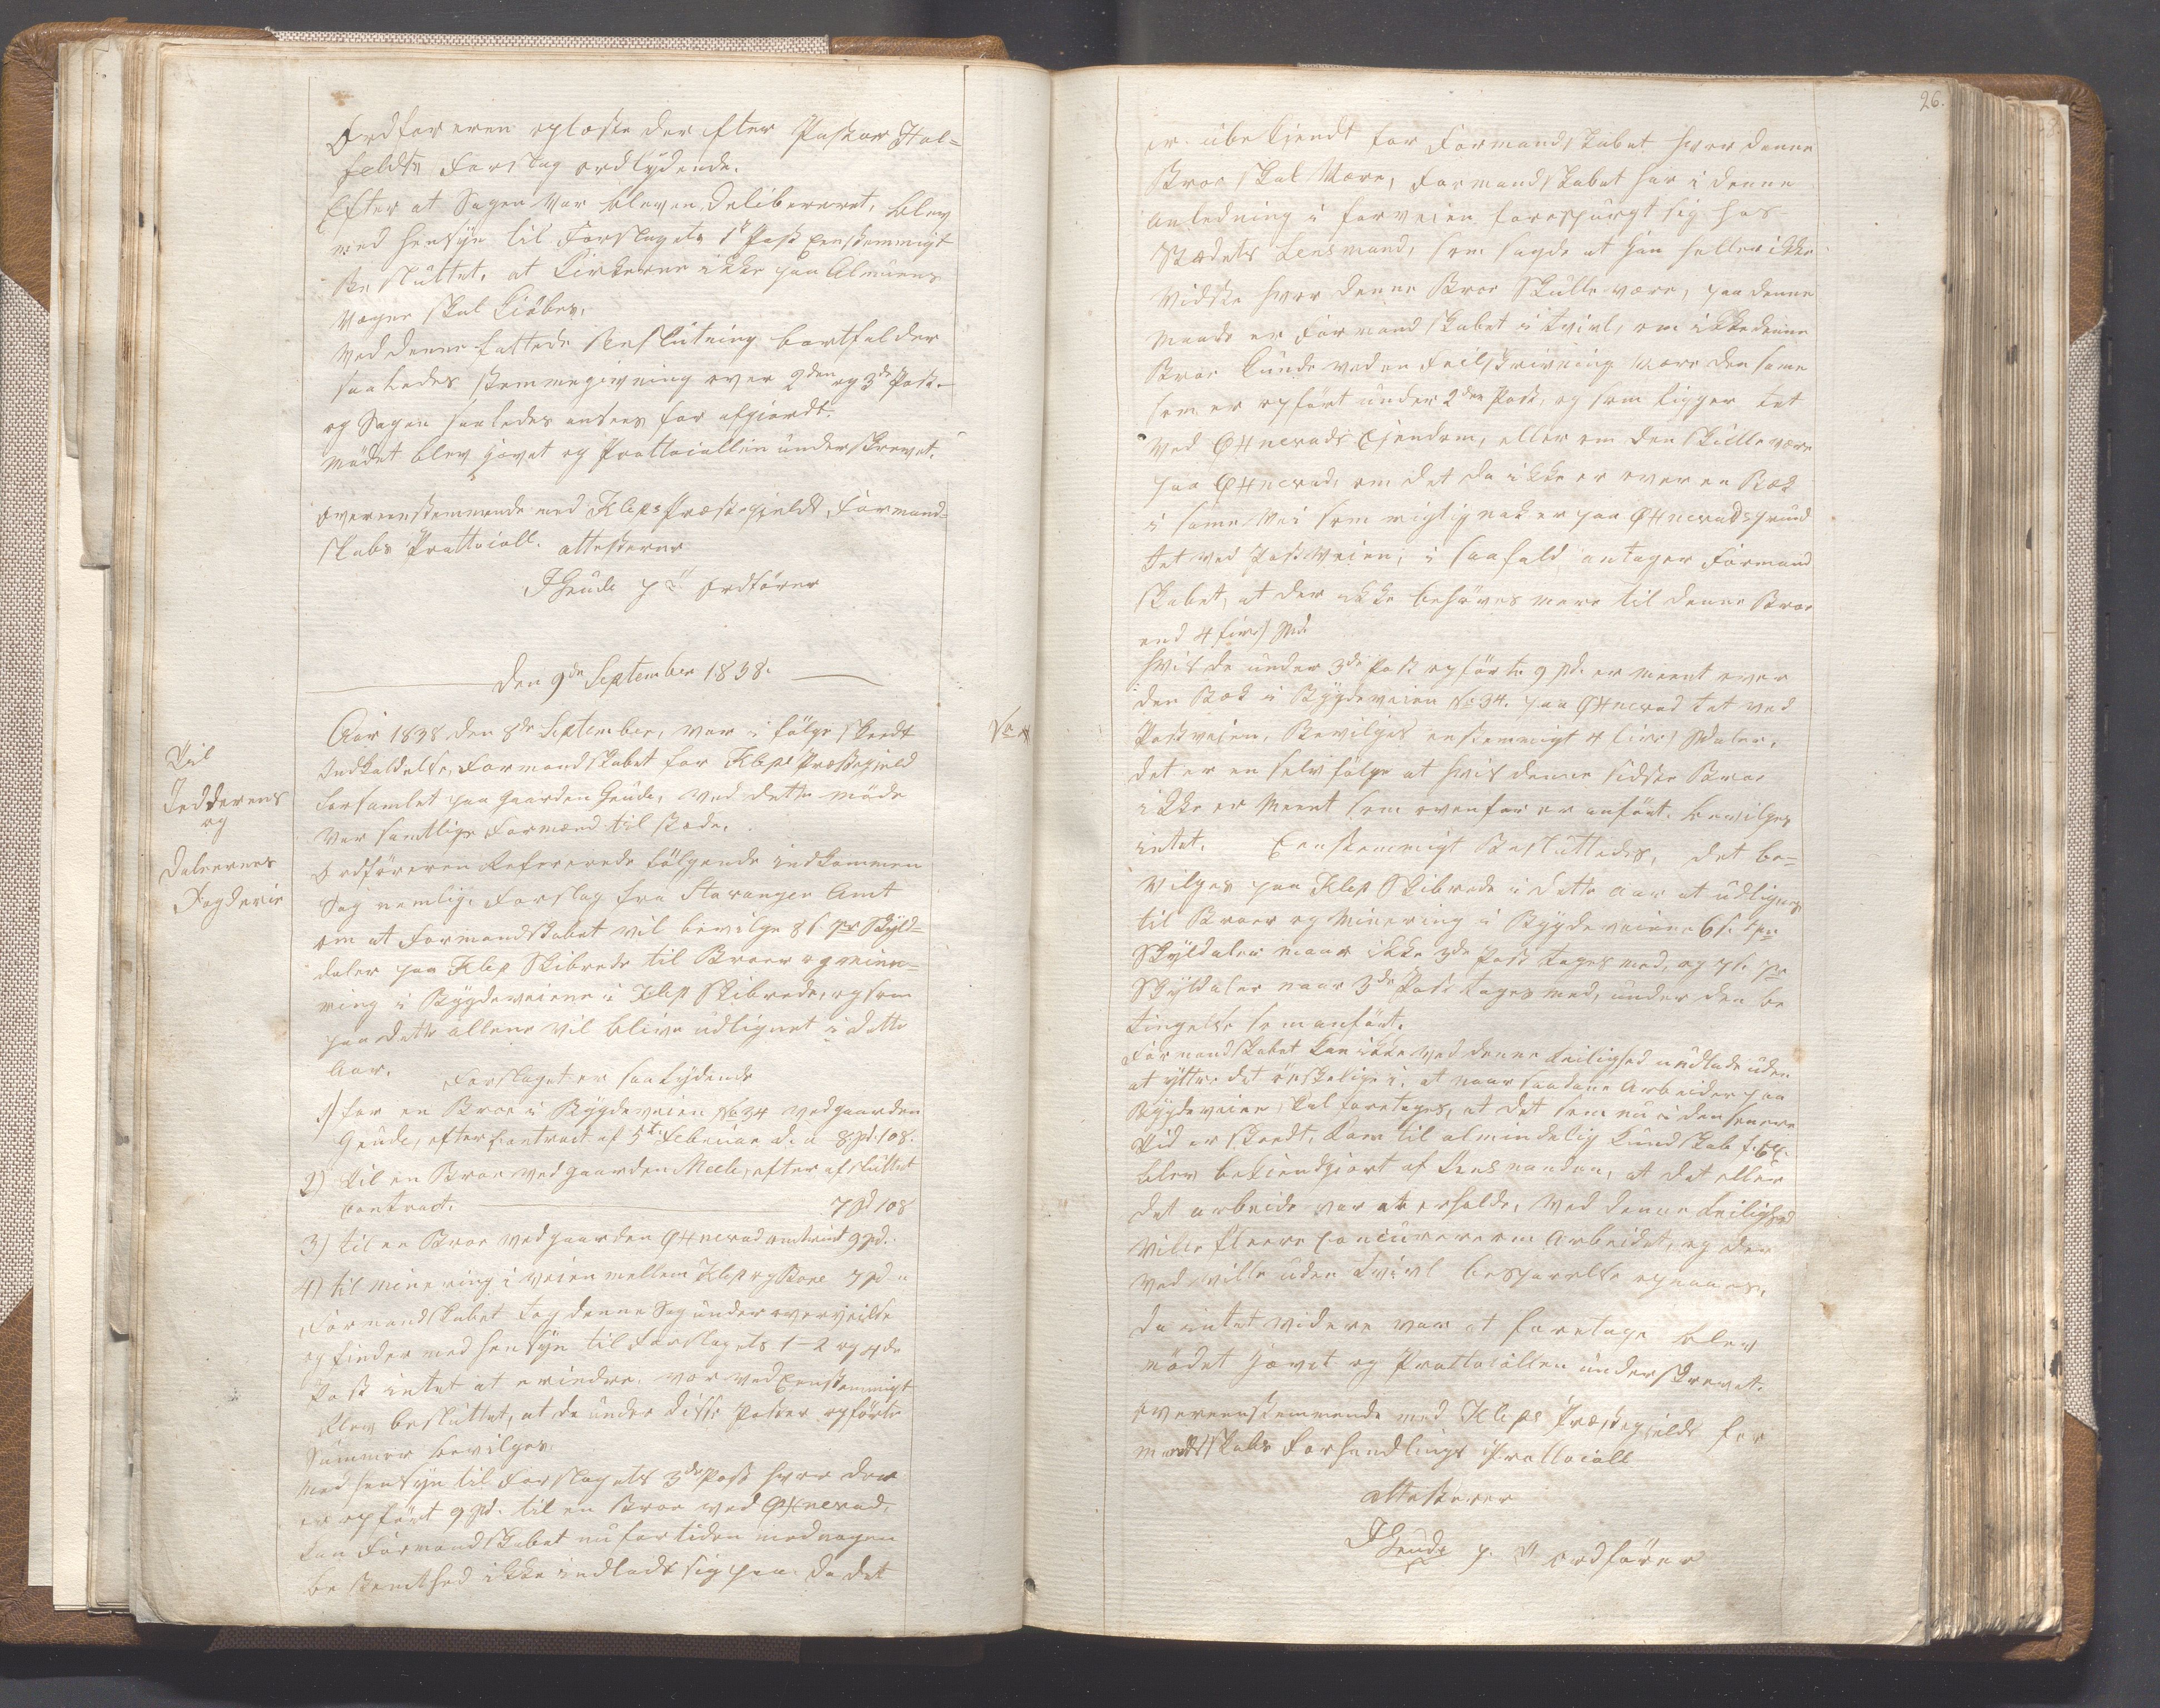 Ordføreren oplæste derefter Pastor Hol=
feldts Forslag ordlydende.
Efter at Sagen var bleven delibereret, blev
med Hensyn til Forslagets 1st Post Eenstemmigt
Besluttet, at Kirkerne ikke paa Almuens
Vegne skal Kiöbes.
Ved denne fattede Beslutning bortfalder
saaledes stemmegivning over 2den og 3de Post
og Sagen saaledes ansees for afgiordt.
Mödet blev hævet og Prottocollen underskrevet.
Overeensstemmende med Kleps Præstegields Formand-
skabs Prottocoll. attesterer
JGeude p.t. Ordförer
Den 9de September 1838.
Til
Jedderens
og
Dalernes
Fogderie
Aar 1838 den 8de September, var i fölge skeedt
Indkaldelse, Formandskabet for Kleps Præstegield
forsamlet paa Gaarden Geude, ved dette möde
var samtlige Formænd tilstæde.
Ordföreren Refererede fölgende indkommen
Sag nemlig: Forslag fra Stavanger Amt
om at Formandskabet vil bevilge 8 s pr Skyld-
daler paa Klep Skibrede til Broer og mine-
ring i Bygdeveiene i Klep Skibrede, og som
paa dette allene vil blive udlignet i dette
Aar. Forslaget er saa lydende
1) for en Broe i Bygdeveien No 34 ved gaarden
Geude, efter Contract af 5te Februar d. a 8 spd. 108.
2) Til en Broe ved gaarden Mæle, efter afsluttet
Contract. 7 spd 108
3) til en Broe ved gaarden Öxnevad omtrent 9 spd.
4) til minering i veien mellem Klep og Bore 7 spd "
Formandskabet tog denne Sag under overveielse
og finder med hensyn til Forslagets 1-2 og 4de
Post intet at erindre. vorved Eenstemmigt
blev besluttet, at de under disse Poster opförte
Summer bevilges.
Med hensyn til Forslagets 3de Post hvor der
er opfört 9 spd. til en Broe ved Öxnevad,
kan Formandskabet nu for tiden med nogen
bestemthed ikke indlade sig paa da det
26.
er ubekjendt for Formandskabet hvor denne
Broe skal Være, Formandskabet har i denne
anledning i forveien forespurgt sig hos
Stædets Lensmand, som sagde at han heller ikke
Vidste hvor denne Broe Skulle være, paa denne
Maade er Formandskabet i tvivl, om ikke denne
Broe kunde ved en Feilskrivning være den same
som er opfört under 2den Post, og som ligger tet
ved Öxnevads Ejendom, eller om den skulle være
paa Öxnevad, om det da ikke er over en Bæk
i same Vei som rigtig nok er paa Öxnevads grund
tet ved Postveien, i saafald antager Formand
skabet, at der ikke behöves mere til denne Broe
end 4 fire) Spd.
Hvis de under 3de Post opförte 9 spd. er meent over
den Bæk i Bygdeveien No 34. paa Öxnevad tet ved
Postveien, Bevilges enstemmigt 4 fire) Spdaler.
det er en selvfölge at hvis denne sidste Broe
ikke er Meent som ovenfor er anfört. bevilges
intet. Eenstemmigt Besluttedes, det be-
vilges paa Klep Skibrede i dette Aar at udlignes
til Broer og Minering i Bygdeveiene 6 s. pr
Skyldaler naar ikke 3de Post tages med, og 7 s. pr
Skyldaler naar 3de Post tages med, under den be
tingelse som anfört.
Formandskabet kan ikke ved denne Leilighed undlade uden
at yttre det önskelige i, at naar saadane Arbeider paa
Bygdeveiene skal foretages, at det som nu i den senere
Tid er skeedt, kom til almindelig Kundskab f: Ex.
blev bekiendgiort af Lensmanden, at det eller
det arbeide var at erholde, ved denne Leilighed
ville fleere Concurere om Arbeidet, og der
ved ville uden tvivl besparelse opnaaes.
Da intet videre var at foretage blev
mödet hævet og Prottocollen underskrevet.
Overeensstemmende med Klep Præstegields For
mandskabs Forhandlings Prottocoll
attesterer
JGeude p. t. ordförer